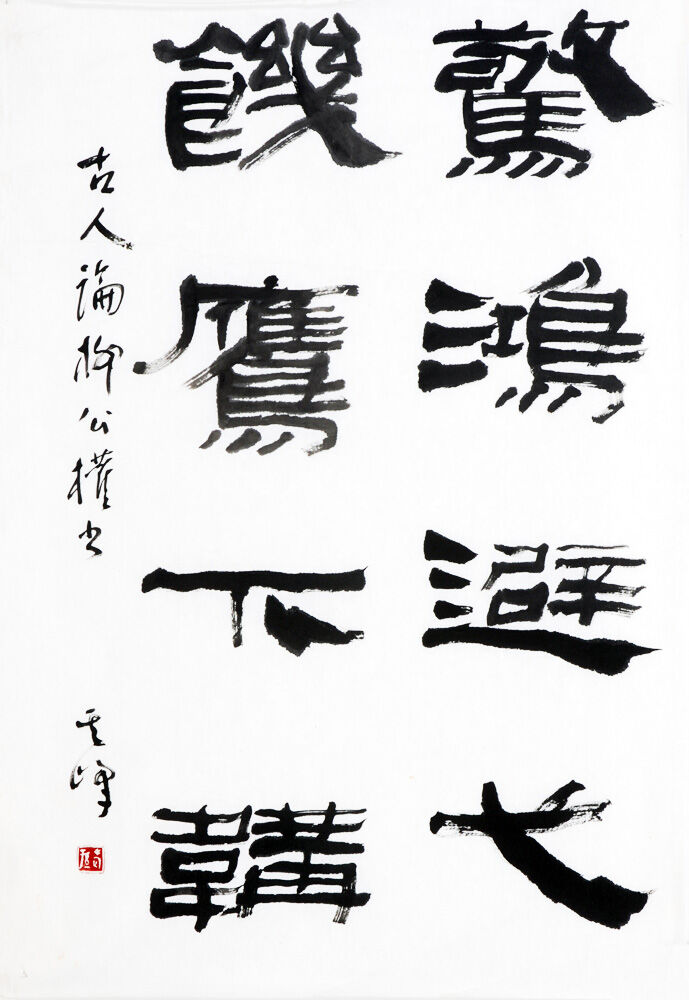 驚鴻避弋
饑鷹下韝
古人論柳公權书
云峰